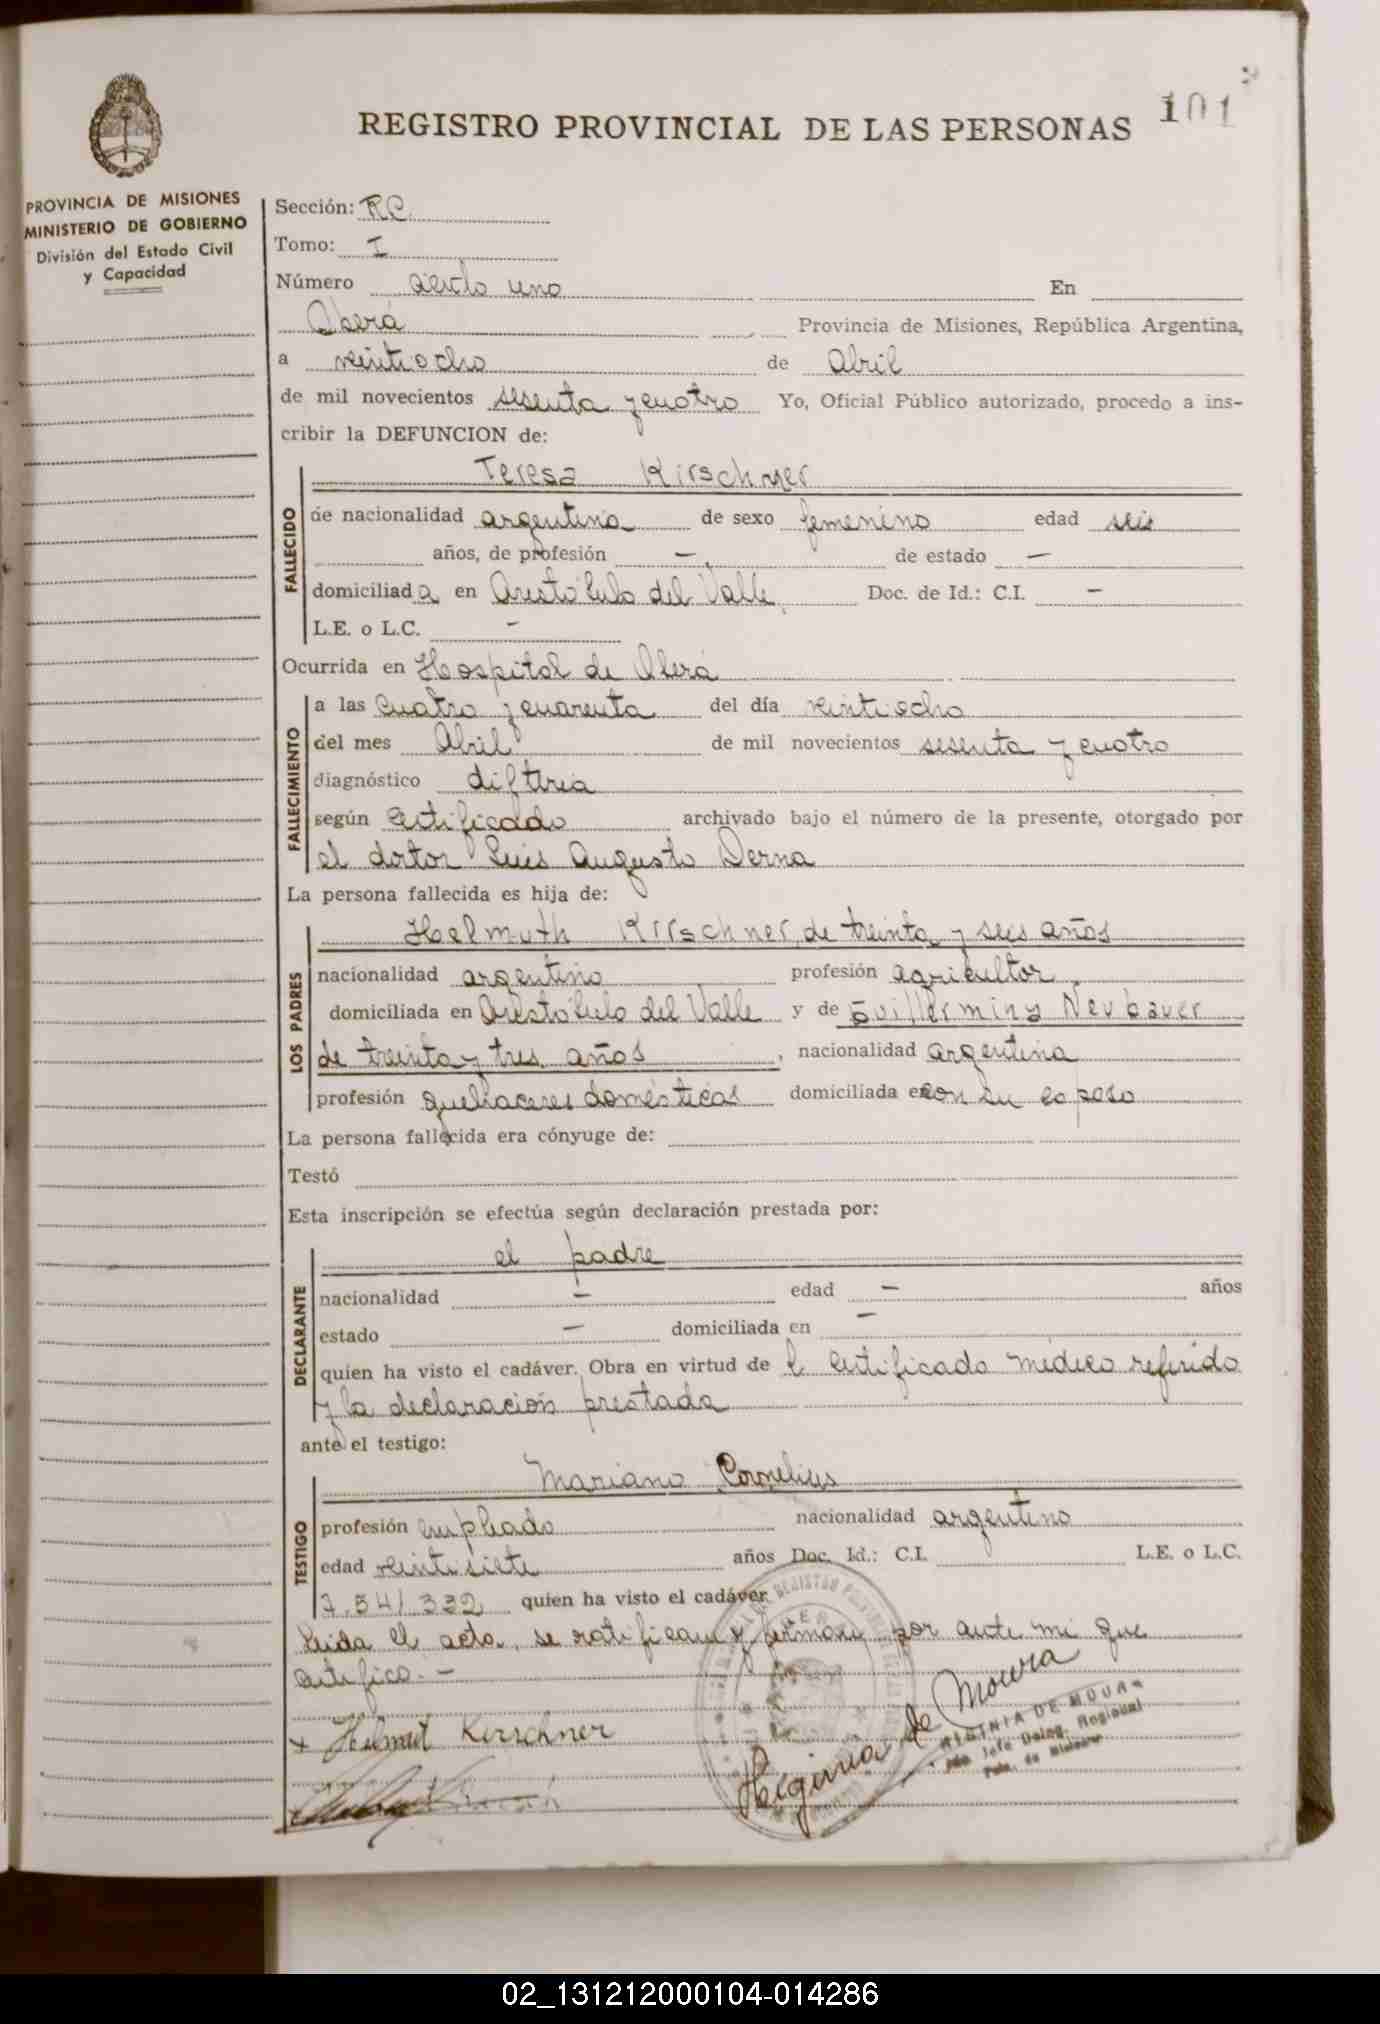 101
REGISTRO PROVINCIAL DE LAS PERSONAS
PROVINCIA DE MISIONES
MINISTERIO DE GOBIERNO
División del Estado Civil
y Capacidad
Sección: RC
Tomo: I
Número ciento uno En
Oberá Provincia de Misiones, República Argentina,
a veintiocho de Abril
de mil novecientos sesenta y cuatro Yo, Oficial Público autorizado, procedo a ins-
cribir la DEFUNCION de:
Teresa Kirschner
FALLECIDO
de nacionalidad argentina de sexo femenino edad seis
años, de profesión — de estado —
domiciliada en Aristóbulo del Valle Doc. de Id.: C.I. —
L.E. o L.C. -
Ocurrida en Hospital de Oberá
FALLECIMIENTO
a las cuatro y cuarenta del día veintiocho
del mes Abril de mil novecientos sesenta y cuatro
diagnóstico difteria
según certificado archivado bajo el número de la presente, otorgado por
el doctor Luis Augusto Derna
La persona fallecida es hija de:
Helmuth Kirschner, de treinta y seis años
LOS PADRES
nacionalidad argentino profesión agricultor
domiciliada en Aristóbulo del Valle y de Guillermina Neubauer
de treinta y tres años, nacionalidad argentina
profesión quehaceres domésticas domiciliada en con su esposo
La persona fallecida era cónyuge de:
Testó
Esta inscripción se efectúa según declaración prestada por:
el padre
DECLARANTE
nacionalidad — edad — años
estado — domiciliada en —
quien ha visto el cadáver. Obra en virtud de l certificado médico referido
y la declaración prestada
ante el testigo:
Mariano Cornelius
TESTIGO
profesión empleado nacionalidad argentino
edad veintisiete años Doc. Id.: C.I. L.E. o L.C.
7.541.332 quien ha visto el cadáver
Leida el acta, se ratifican y firman por ante mi que
certifico. —
Helmut Kirschner
Higinia de Moura
HIGINIA DE MOURA
Jefe Deleg. Regional
02_131212000104-014286